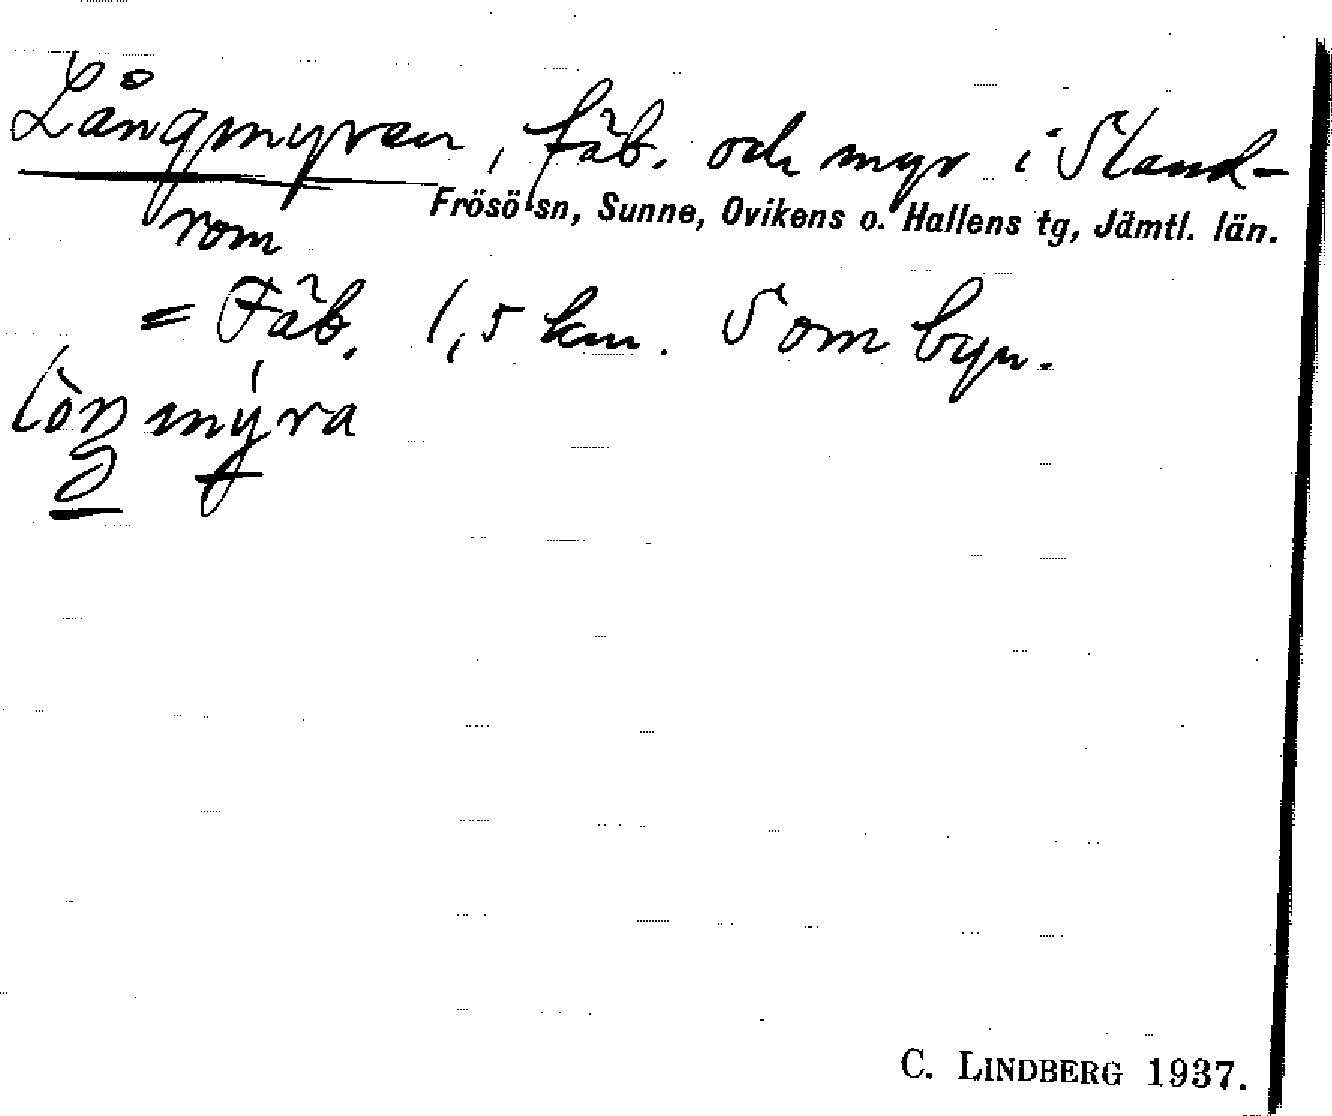 Långmyren, fäb. och myr i Stand-
Frösö sn, Sunne, Ovikens o. Hallens tg, Jämtl. län.
rom
= Fäb. 1,5 km. S om byn.
C. LINDBERG 1937.